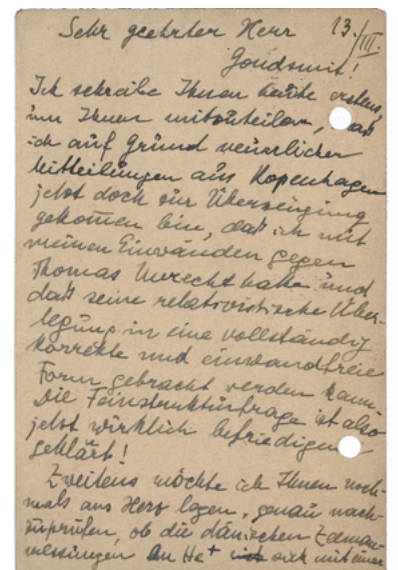 Sehr geehrter Herr 13./III.
Goudsmit!
Ich schreibe Ihnen heute erstens,
um Ihnen mitzuteilen, daß
ich auf Grund neuerlicher
Mitteilungen aus Kopenhagen
jetzt doch zur Überzeugung
gekommen bin, daß ich mit
meinen Einwänden gegen
Thomas Unrecht hatte und
daß seine relativistische Über-
legung in eine vollständig
korrekte und einwandfreie
Form gebracht werden kann.
Die Feinstrukturfrage ist also
jetzt wirklich befriedigend
geklärt!
Zweitens möchte ich Ihnen noch-
mals ans Herz legen, genau nach-
zuprüfen, ob die dänischen
messungen an He+ sich mit einer